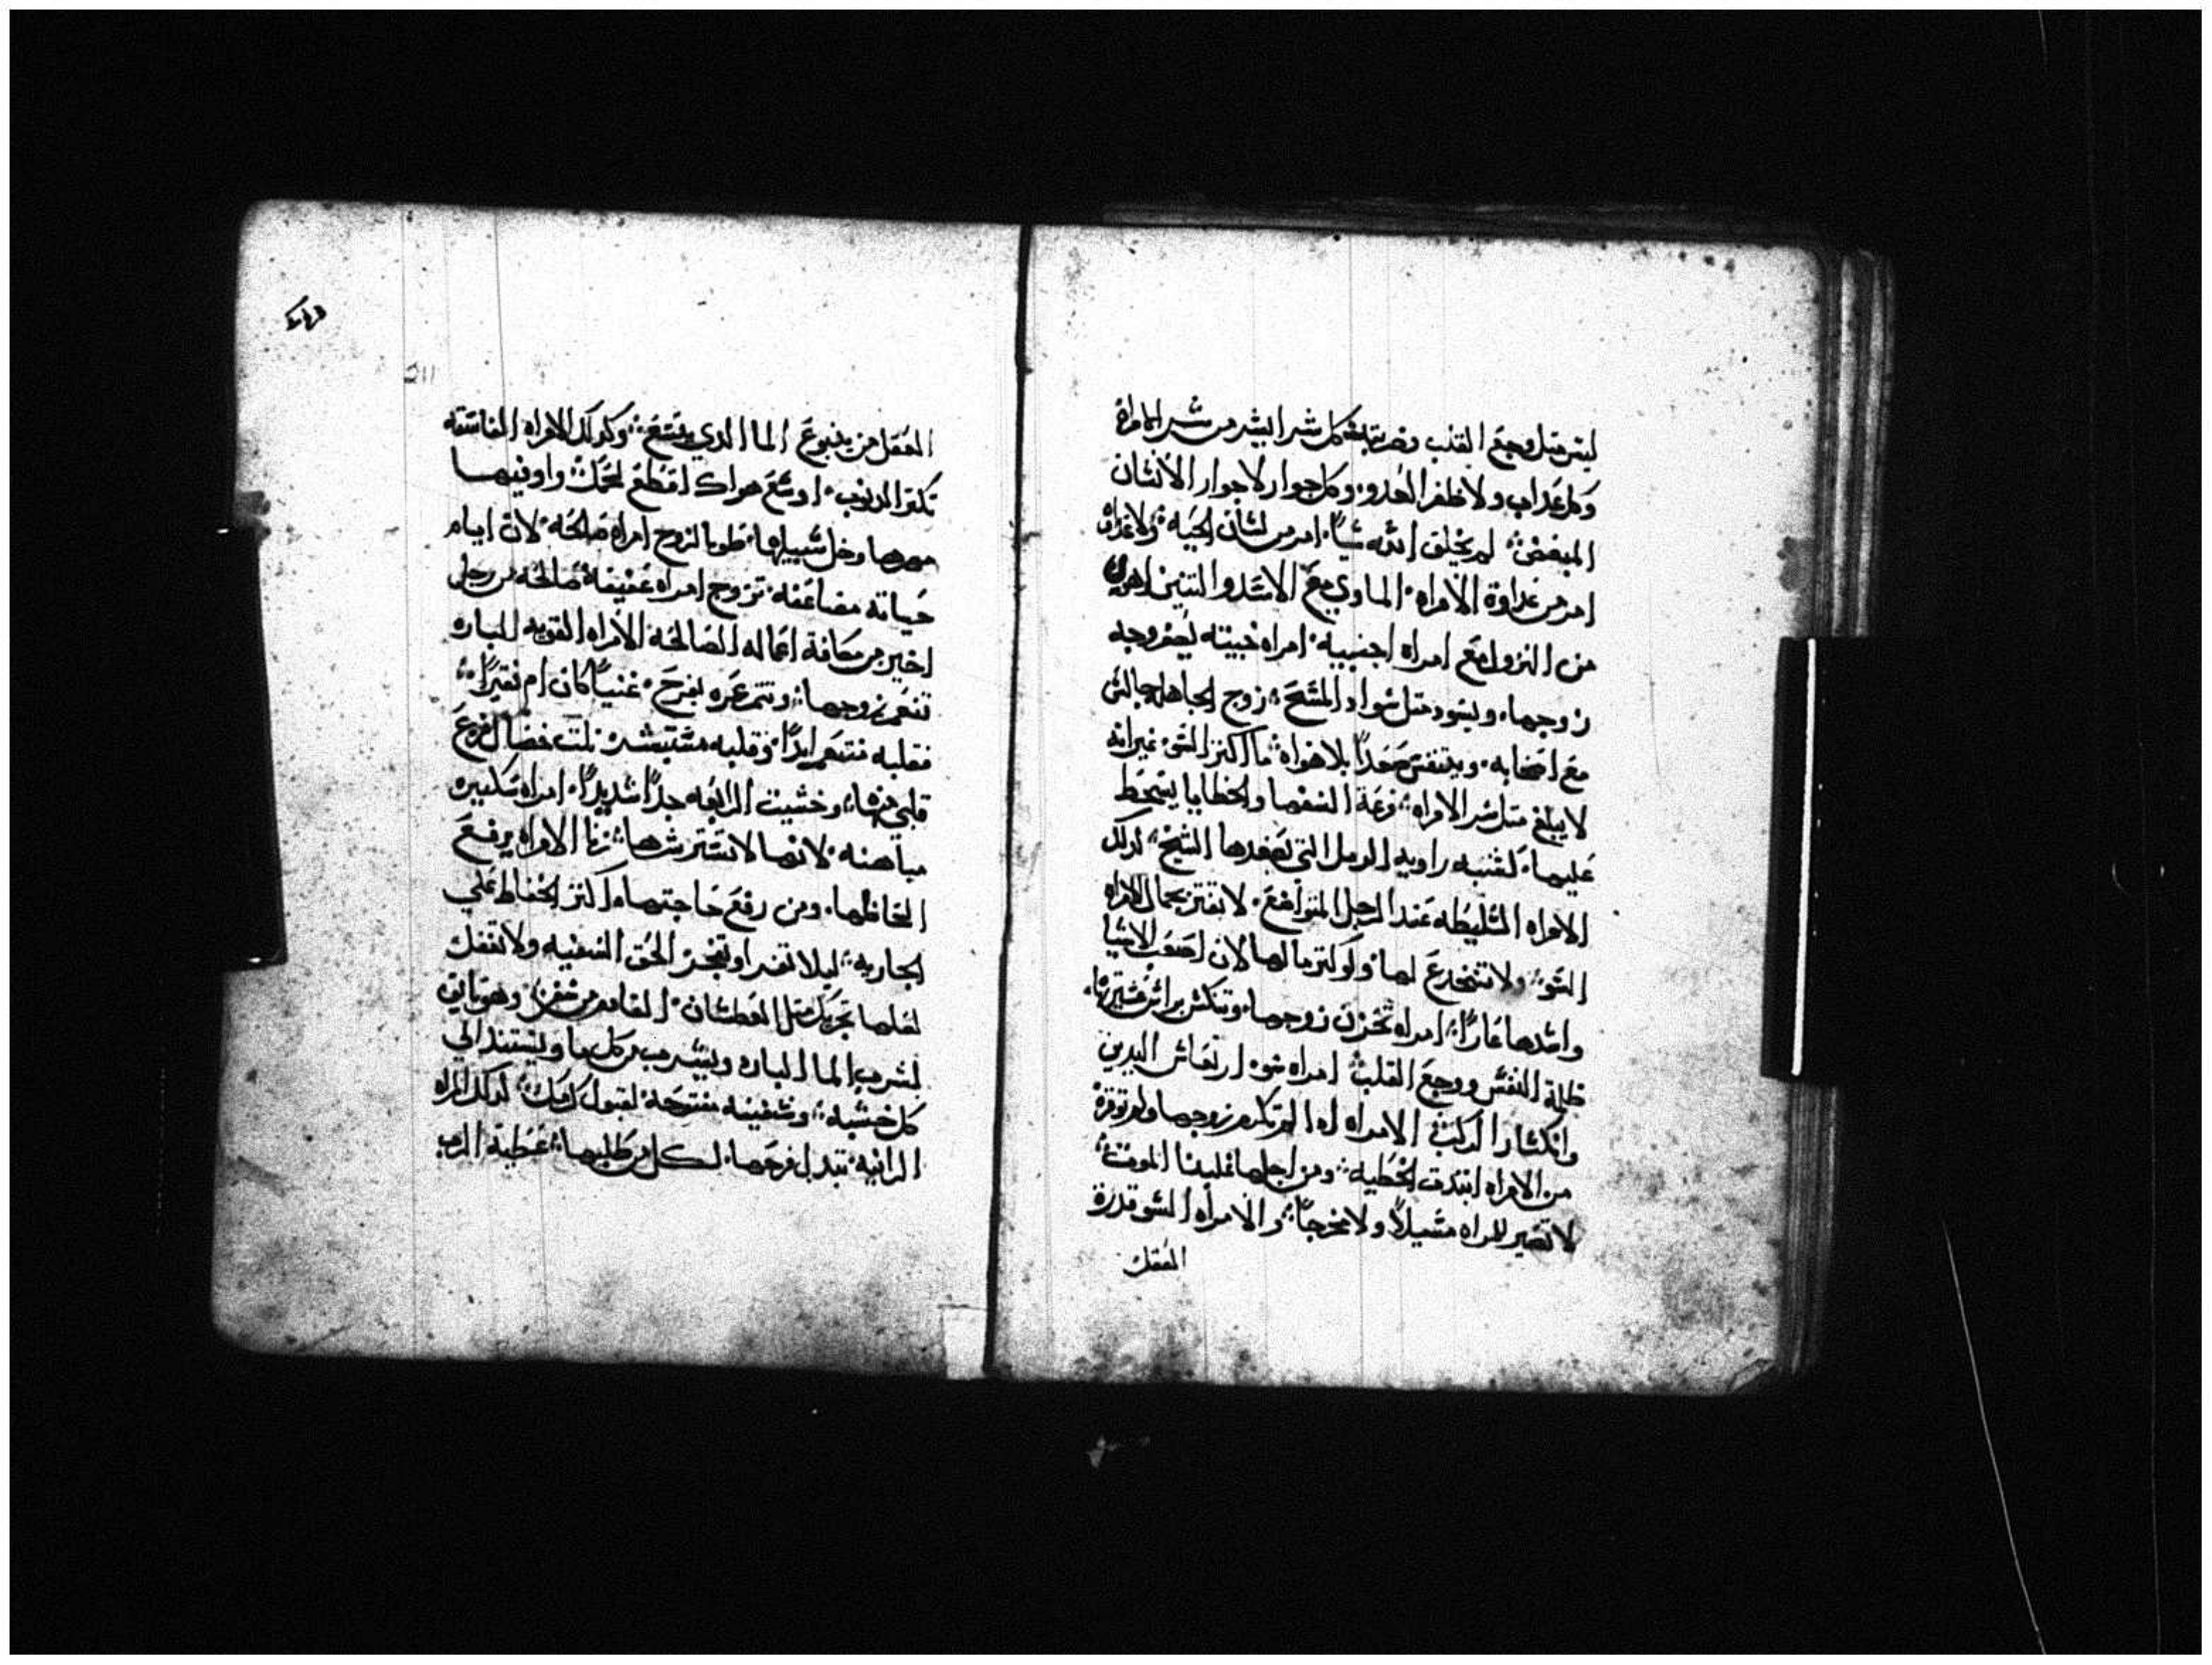 ليس مثل وجع القلب وضربته وكل شر ايشر من شر الامراة
وكل عداب ولا ظفر العدو وكل جوار لا جوار الانشان
المبغض لم يخلق الله شيا امر من لشان الحيه ولا عداوه
امر من عداوة الامراه الماوي مع الاسد والتنين اهون
من النزول مع امراه اجنبيه امراه خبيته يصفر وجه
زوجها ويسود متل سواد المسح زوج الجاهله جالس
مع اصحابه ويتنفس صعدا بلا هواه ما اكتر الشي غير انه
لا يبلغ متل شر الامراه قرعة السفها والخطايا يسخط
عليها كشبه راويه الرمل التي يصعدها الشيخ كدلك
الامراه السليطه عند الرجل المتواضع لا تغتر بجمال الامراه
السو ولا تنخدع لها ولو كتر مالها لان اصعب الاشيا
واشدها عارا امراه تحزن زوجها وتنكس براس عشيرتها
ظلمة النفس ووجع القلب امراه سو ارتعاش اليدين
وانكسار الركب الامراه ادا لم تكرم زوجها ولم توقره
من الامراه ابتدت الخطيه ومن اجلها غلبنا الموت
لا تصير للمراه مسيلا ولا مخرجا والامراه السو قدرة
العقل
211
العقل من ينبوع الما الدي ينبع وكدلك الامراه الفاسقه
تكتر الدنوب اوسع هواك اقطع لحمك واوفيها
مهرها وخل سبيلها طوبا لزوج امراه صالحه لان ايام
حياته مضاعفه تزوج امراه عفيفه صالحه من رجل
اخير من مكافة اعماله الصالحه الامراه القويه الباره
تنعم زوجها وتتم عمره بفرح غنيا كان ام فقيرا
فقلبه متنعم ابدا وقلبه مستبشر تلت خصال فزع
قلبي منها وخشيت الرابعه جدا شديدا امراه سكيره
مباهته لانها لا تستر شرها زنا الامراه يرفع
الحاظها ومن رفع حاجتها اكتر الحفاظ علي
الجاريه ليلا تغدر او تفجر الحق السفيه ولا تغفل
لعلها تجربك متل العطشان القادم من سفر وهو تايق
لشرب الما البارد ويشرب من كل ما ويستند الي
كل خشبه وشفيته مفتوحه لقبول كلامك كدلك المراه
الزانيه تبدل فرجها لكل من طلبها عطية الرب